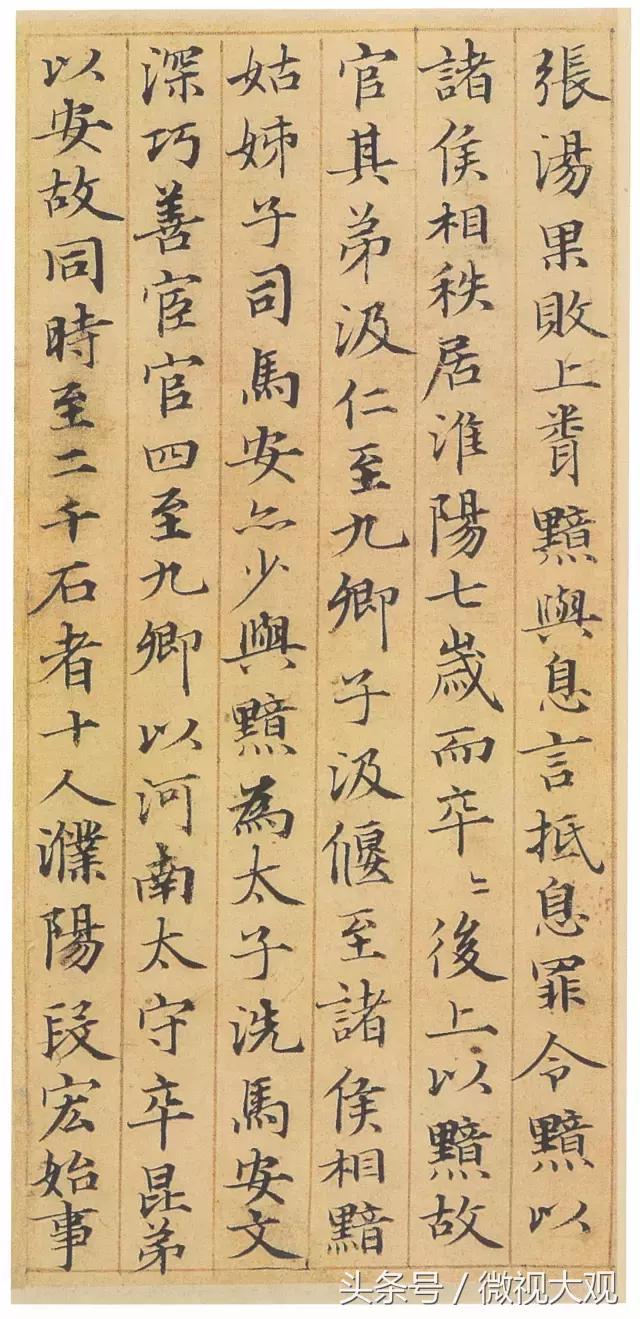 張湯果敗上聞黯與息言抵息罪令黯以
諸侯相秩居淮陽七歲而卒〻後上以黯故
官其弟汲仁至九卿子汲偃至諸侯相黯
姑姊子司馬安亦少與黯為太子洗馬安文
深巧善宦官四至九卿以河南太守卒昆弟
以安故同時至二千石者十人濮陽段宏始事
头条号 / 微视大观